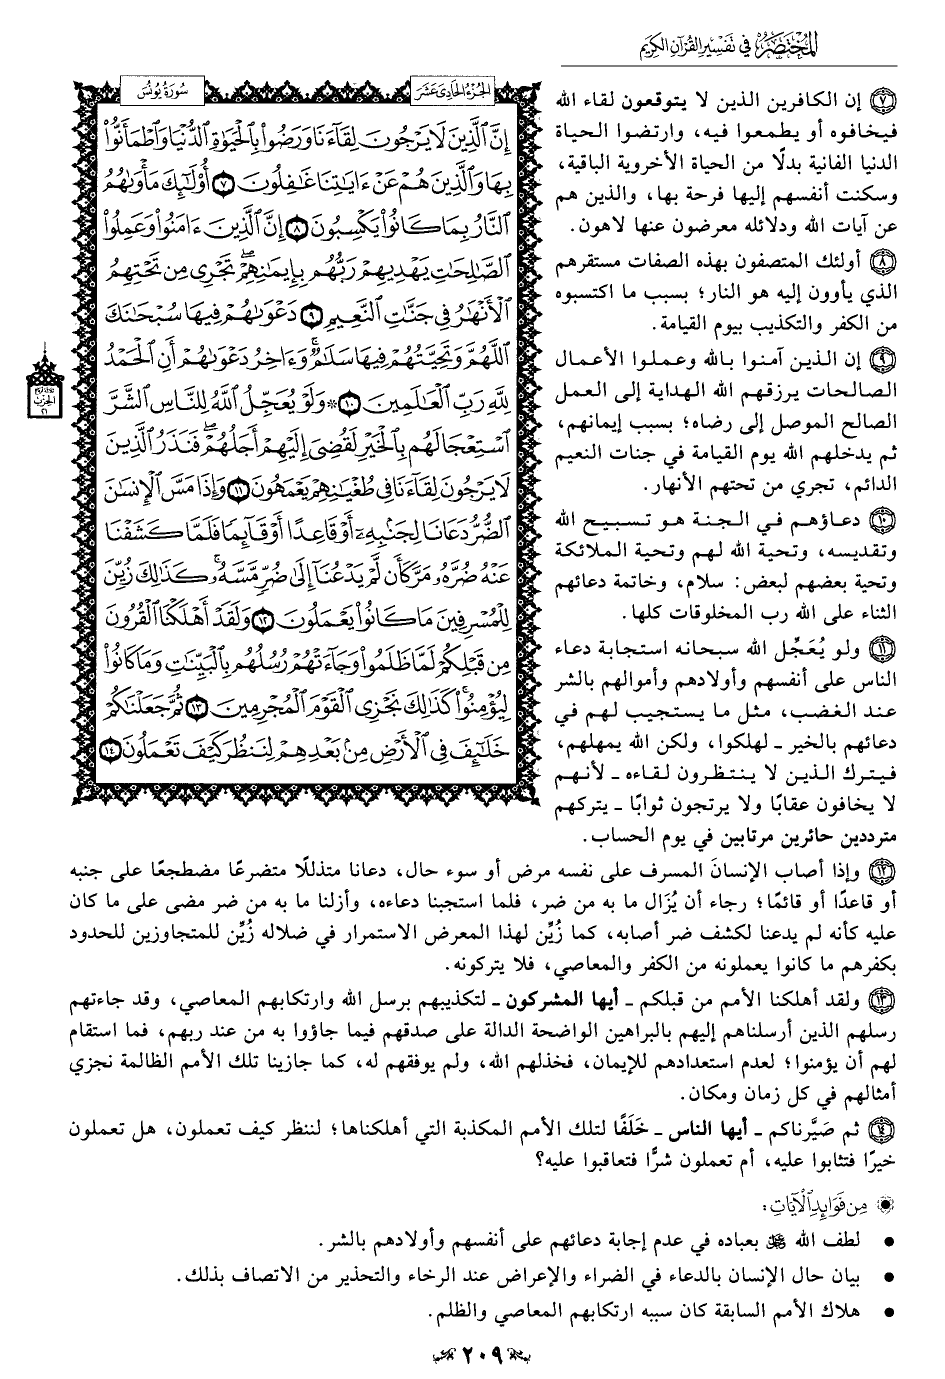 المختصر في تفسير القرآن الكريم
الجزء الحادي عشر
سورة يونس
إِنَّ ٱلَّذِينَ لَا يَرْجُونَ لِقَآءَنَا وَرَضُوا۟ بِٱلْحَيَوٰةِ ٱلدُّنْيَا وَٱطْمَأَنُّوا۟
بِهَا وَٱلَّذِينَ هُمْ عَنْ ءَايَٰتِنَا غَٰفِلُونَ ٧ أُو۟لَٰٓئِكَ مَأْوَىٰهُمُ
ٱلنَّارُ بِمَا كَانُوا۟ يَكْسِبُونَ ٨ إِنَّ ٱلَّذِينَ ءَامَنُوا۟ وَعَمِلُوا۟
ٱلصَّٰلِحَٰتِ يَهْدِيهِمْ رَبُّهُم بِإِيمَٰنِهِمْ ۖ تَجْرِى مِن تَحْتِهِمُ
ٱلْأَنْهَٰرُ فِى جَنَّٰتِ ٱلنَّعِيمِ ٩ دَعْوَىٰهُمْ فِيهَا سُبْحَٰنَكَ
ٱللَّهُمَّ وَتَحِيَّتُهُمْ فِيهَا سَلَٰمٌ ۚ وَءَاخِرُ دَعْوَىٰهُمْ أَنِ ٱلْحَمْدُ
لِلَّهِ رَبِّ ٱلْعَٰلَمِينَ ١٠ ۞ وَلَوْ يُعَجِّلُ ٱللَّهُ لِلنَّاسِ ٱلشَّرَّ
ٱسْتِعْجَالَهُم بِٱلْخَيْرِ لَقُضِىَ إِلَيْهِمْ أَجَلُهُمْ ۖ فَنَذَرُ ٱلَّذِينَ
لَا يَرْجُونَ لِقَآءَنَا فِى طُغْيَٰنِهِمْ يَعْمَهُونَ ١١ وَإِذَا مَسَّ ٱلْإِنسَٰنَ
ٱلضُّرُّ دَعَانَا لِجَنۢبِهِۦٓ أَوْ قَاعِدًا أَوْ قَآئِمًا فَلَمَّا كَشَفْنَا
عَنْهُ ضُرَّهُۥ مَرَّ كَأَن لَّمْ يَدْعُنَآ إِلَىٰ ضُرٍّ مَّسَّهُۥ ۚ كَذَٰلِكَ زُيِّنَ
لِلْمُسْرِفِينَ مَا كَانُوا۟ يَعْمَلُونَ ١٢ وَلَقَدْ أَهْلَكْنَا ٱلْقُرُونَ
مِن قَبْلِكُمْ لَمَّا ظَلَمُوا۟ وَجَآءَتْهُمْ رُسُلُهُم بِٱلْبَيِّنَٰتِ وَمَا كَانُوا۟
لِيُؤْمِنُوا۟ ۚ كَذَٰلِكَ نَجْزِى ٱلْقَوْمَ ٱلْمُجْرِمِينَ ١٣ ثُمَّ جَعَلْنَٰكُمْ
خَلَٰٓئِفَ فِى ٱلْأَرْضِ مِنۢ بَعْدِهِمْ لِنَنظُرَ كَيْفَ تَعْمَلُونَ ١٤
الحزب
٢١
٧ إن الكافرين الذين لا يتوقعون لقاء الله
فيخافوه أو يطمعوا فيه، وارتضوا الحياة
الدنيا الفانية بدلًا من الحياة الأخروية الباقية،
وسكنت أنفسهم إليها فرحة بها، والذين هم
عن آيات الله ودلائله معرضون عنها لاهون.
٨ أولئك المتصفون بهذه الصفات مستقرهم
الذي يأوون إليه هو النار؛ بسبب ما اكتسبوه
من الكفر والتكذيب بيوم القيامة.
٩ إن الذين آمنوا بالله وعملوا الأعمال
الصالحات يرزقهم الله الهداية إلى العمل
الصالح الموصل إلى رضاه؛ بسبب إيمانهم،
ثم يدخلهم الله يوم القيامة في جنات النعيم
الدائم، تجري من تحتهم الأنهار.
١٠ دعاؤهم في الجنة هو تسبيح الله
وتقديسه، وتحية الله لهم وتحية الملائكة
وتحية بعضهم لبعض: سلام، وخاتمة دعائهم
الثناء على الله رب المخلوقات كلها.
١١ ولو يُعَجِّل الله سبحانه استجابة دعاء
الناس على أنفسهم وأولادهم وأموالهم بالشر
عند الغضب، مثل ما يستجيب لهم في
دعائهم بالخير ـ لهلكوا، ولكن الله يمهلهم،
فيترك الذين لا ينتظرون لقاءه ـ لأنهم
لا يخافون عقابًا ولا يرتجون ثوابًا ـ يتركهم
مترددين حائرين مرتابين في يوم الحساب.
١٢ وإذا أصاب الإنسانَ المسرف على نفسه مرض أو سوء حال، دعانا متذللًا متضرعًا مضطجعًا على جنبه
أو قاعدًا أو قائمًا؛ رجاء أن يُزَال ما به من ضر، فلما استجبنا دعاءه، وأزلنا ما به من ضر مضى على ما كان
عليه كأنه لم يدعنا لكشف ضر أصابه، كما زُيِّن لهذا المعرض الاستمرار في ضلاله زُيِّن للمتجاوزين للحدود
بكفرهم ما كانوا يعملونه من الكفر والمعاصي، فلا يتركونه.
١٣ ولقد أهلكنا الأمم من قبلكم ـ أيها المشركون ـ لتكذيبهم برسل الله وارتكابهم المعاصي، وقد جاءتهم
رسلهم الذين أرسلناهم إليهم بالبراهين الواضحة الدالة على صدقهم فيما جاؤوا به من عند ربهم، فما استقام
لهم أن يؤمنوا؛ لعدم استعدادهم للإيمان، فخذلهم الله، ولم يوفقهم له، كما جازينا تلك الأمم الظالمة نجزي
أمثالهم في كل زمان ومكان.
١٤ ثم صَيَّرناكم ـ أيها الناس ـ خَلَفًا لتلك الأمم المكذبة التي أهلكناها؛ لننظر كيف تعملون، هل تعملون
خيرًا فتثابوا عليه، أم تعملون شرًّا فتعاقبوا عليه؟
من فوائد الآيات:
• لطف الله ﷻ بعباده في عدم إجابة دعائهم على أنفسهم وأولادهم بالشر.
• بيان حال الإنسان بالدعاء في الضراء والإعراض عند الرخاء والتحذير من الاتصاف بذلك.
• هلاك الأمم السابقة كان سببه ارتكابهم المعاصي والظلم.
٢٠٩